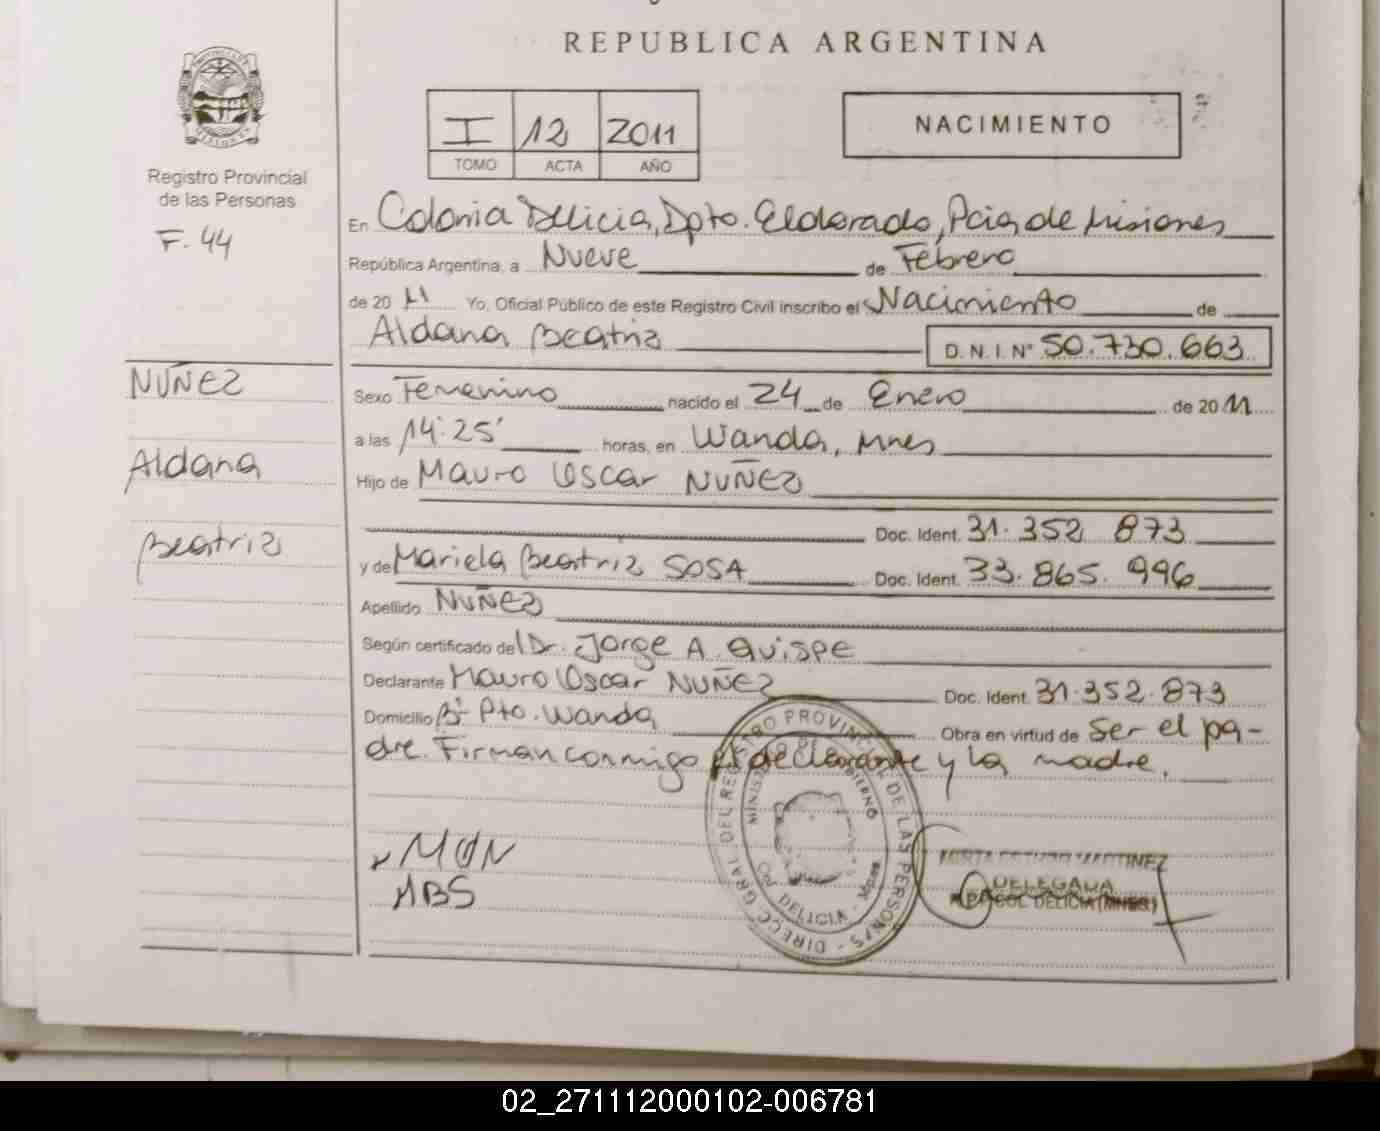 REPUBLICA ARGENTINA
I 12 2011
TOMO ACTA AÑO
NACIMIENTO
Registro Provincial
de las Personas
F. 44
En Colonia Delicia, Dpto. Eldorado, Pcia de Misiones
República Argentina, a Nueve de Febrero
de 2011 Yo, Oficial Público de este Registro Civil inscribo el Nacimiento de
Aldana Beatriz D.N.I. Nº 50.730.663
NUÑEZ
Aldana
Beatriz
Sexo Femenino nacido el 24 de Enero de 2011
a las 14:25' horas, en Wanda, Mnes
Hijo de Mauro Oscar NUÑEZ
Doc. Ident. 31.352 873
y de Mariela Beatriz SOSA Doc. Ident. 33.865.996
Apellido NUÑEZ
Según certificado del Dr. Jorge A. Quispe
Declarante Mauro Oscar NUÑEZ Doc. Ident. 31.352.873
Domicilio Bº Pto. Wanda Obra en virtud de ser el pa-
dre. Firman conmigo el declarante y la madre.
MON
MBS
DIRECC. GRAL. DEL REGISTRO PROVINCIAL DE LAS PERSONAS
DELICIA
MARTINEZ
DELEGADA
COL. DELICIA (MNES.)
02_271112000102-006781